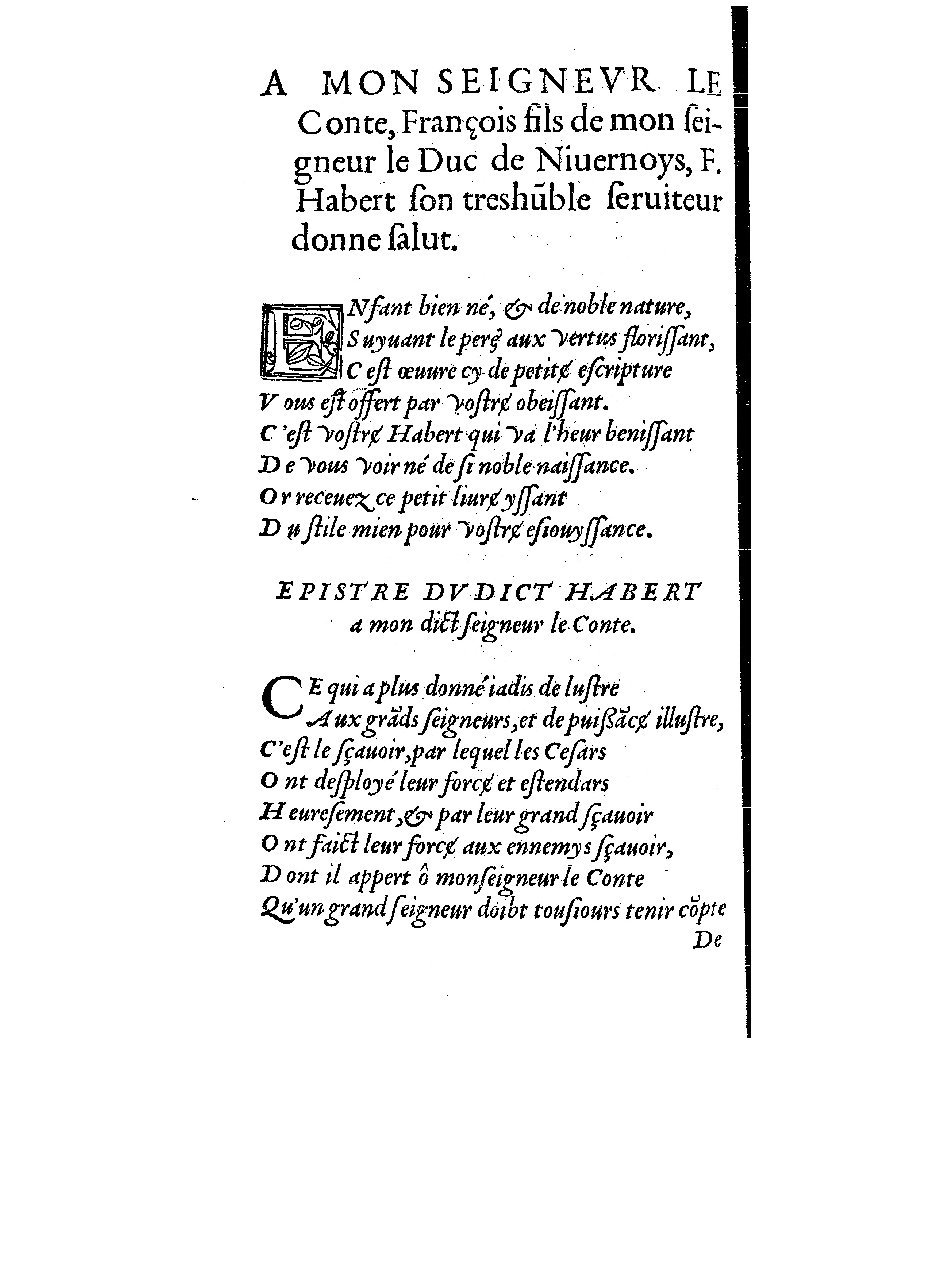 A MON SEIGNEVR LE
Conte, François fils de mon ſei-
gneur le Duc de Niuernoys, F.
Habert ſon treshūble ſeruiteur
donne ſalut.
ENfant bien né, & de noble nature,
Suyuant le perɇ aux vertus floriſſant,
Ceſt œuure cy de petitɇ eſcripture
Vous eſt offert par voſtrɇ obeiſſant.
C'eſt voſtrɇ Habert qui va l'heur beniſſant
De vous voir né de ſi noble naiſſance.
Or receuez ce petit liurɇ yſſant
Du ſtile mien pour voſtrɇ eſiouyſſance.
EPISTRE DVDICT HABERT
a mon dict ſeigneur le Conte.
CE qui a plus donné iadis de luſtre
Aux grāds ſeigneurs, et de puiſsācɇ illuſtre,
C'eſt le ſçauoir, par lequel les Ceſars
Ont deſployé leur forcɇ et eſtendars
Heureſement, & par leur grand ſçauoir
Ont faict leur forcɇ aux ennemys ſçauoir,
Dont il appert ô monſeigneur le Conte
Qu'un grand ſeigneur doibt touſiours tenir cōpte
De